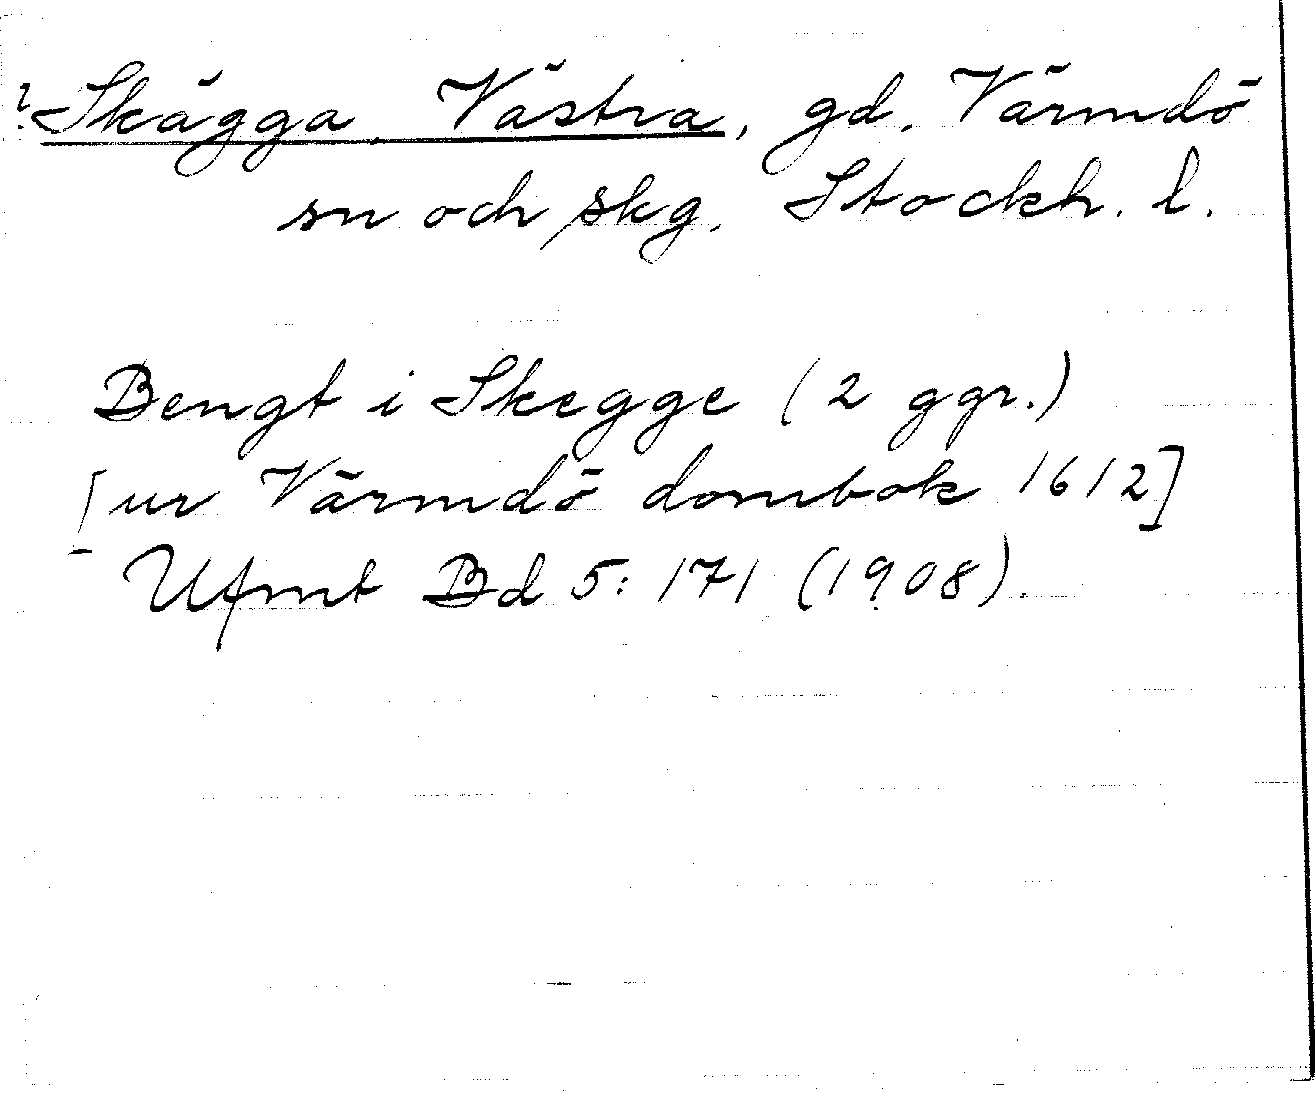 ? Skägga, Västra, gd, Värmdö
sn och skg, Stockh. l.
Bengt i Skegge (2 ggr.)
[ur Värmdö dombok 1612]
Ufmt Bd 5: 171 (1908).